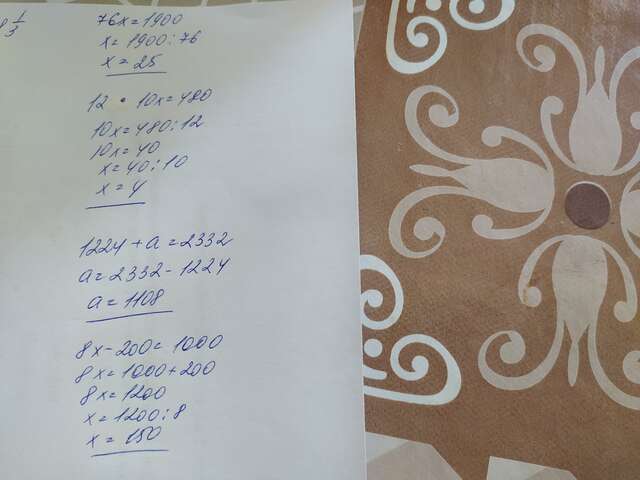 8 1/3
76x=1900
x=1900:76
x=25
12 • 10x=480
10x=480:12
10x=40
x=40:10
x=4
1224+a=2332
a=2332-1224
a=1108
8x-200=1000
8x=1000+200
8x=1200
x=1200:8
x=150